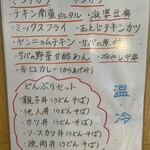 ・チキン南蛮タルタル ・麻婆豆腐
・ミックスフライ ・玉とじチキンカツ
・ヤンニョムチキン ・サバの煮付
・サバの野菜甘酢あん
・辛口カレー
どんぶりセット
・親子丼(うどんそば)
・他人丼(うどんそば)
・カツ丼(うどんそば)
・ソースカツ丼(うどんそば)
・焼肉丼(うどんそば)
温・冷